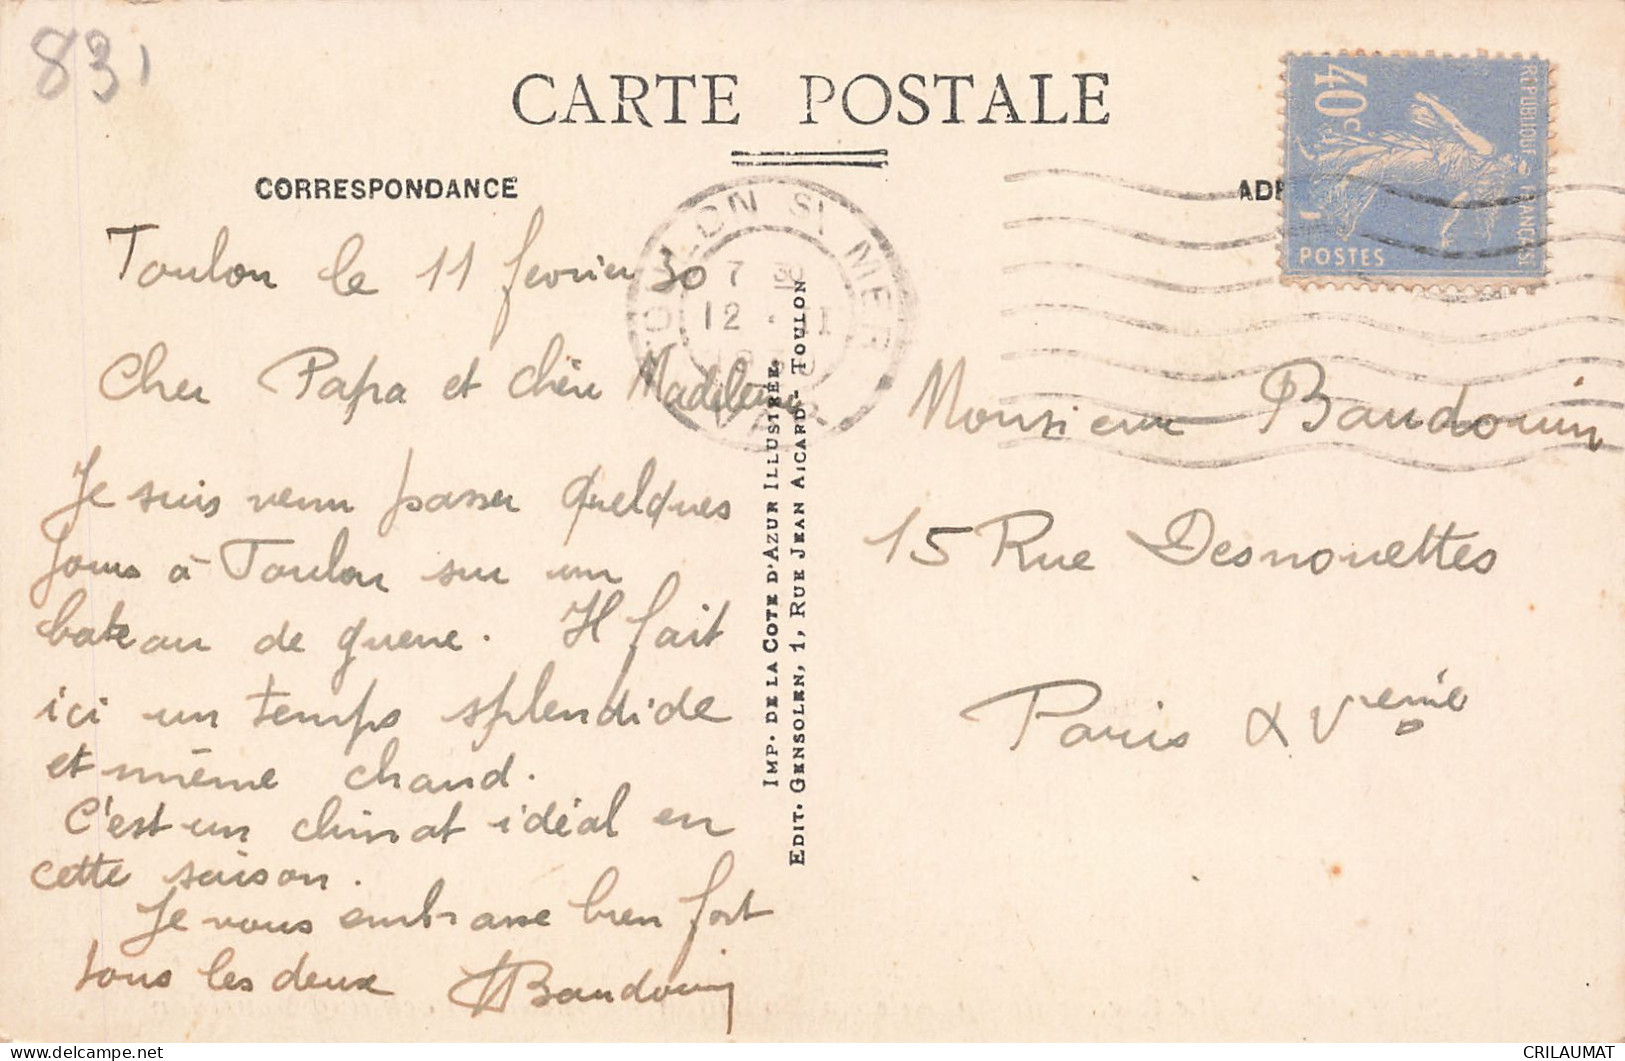 831
CARTE POSTALE
CORRESPONDANCE
Toulon le 11 fevrier 30
Cher Papa et chère Madeleine
Je suis venu passer quelques
jours à Toulon sur un
bateau de guerre. Il fait
ici un temps splendide
et même chaud.
C'est un climat idéal en
cette saison.
Je vous embrasse bien fort
tous les deux Baudouin
TOULON S\ MER
7 30
12 · II
1930
VAR
IMP. DE LA COTE D'AZUR ILLUSTRÉE,
EDIT. GENSOLEN, 1, RUE JEAN AICARD - TOULON
40 c.
REPUBLIQUE FRANÇAISE
POSTES
Monsieur Baudouin
15 Rue Desnouettes
Paris XVeme
CRILAUMAT